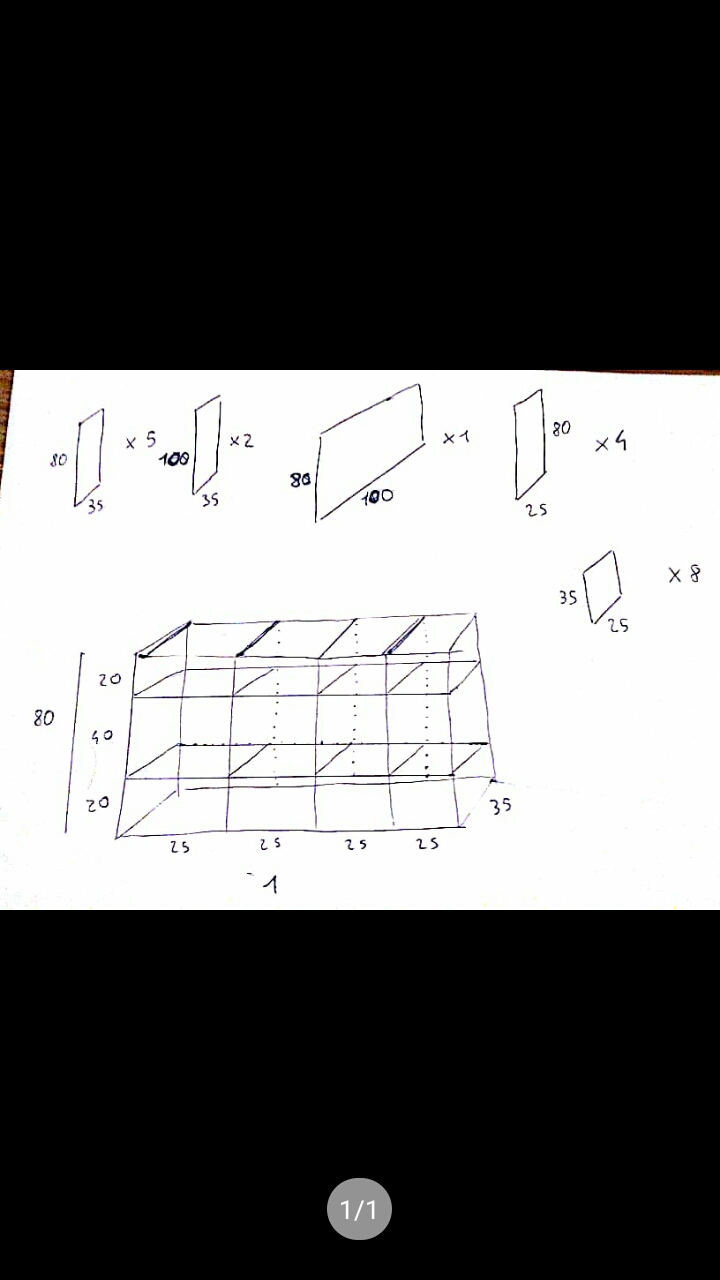 80 35 x 5
100 35 x2
80 100 x1
80 25 x4
35 25 x 8
20
80 40
20
35
25 25 25 25
1
1/1